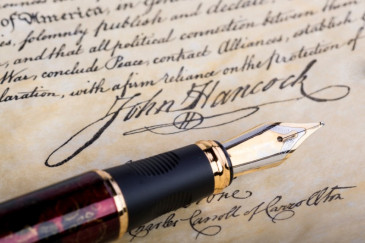 of America, in General
solemnly publish and declare,
and that all political connection between them
War, conclude Peace, contract Alliances, establish
claration, with a firm reliance on the protection of
John Hancock
one
Charles Carroll of Carrollton